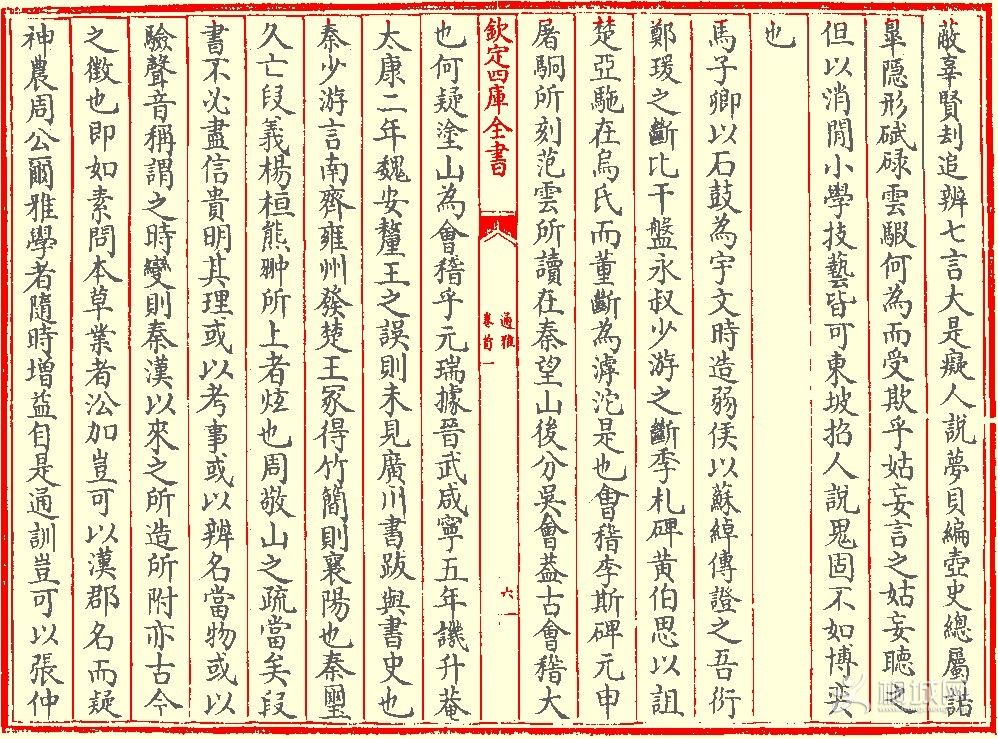 蔽辜賢刦追辨七言大是癡人說夢貝編壺史總屬詁
臯隠形碔碌雲騢何為而受欺乎姑妄言之姑妄聴
但以消閒小學技藝皆可東坡招人說鬼固不如博奕
也
馬子卿以石鼓為宇文時造弱侯以蘇綽傳證之吾衍
鄭瑗之斷比干盤永叔少游之斷季札碑黄伯思以詛
楚亞駞在烏氏而董斷為滹沱是也會稽李斯碑元申
屠駉所刻范雲所讀在秦望山後分吳會葢古會稽大
欽定四庫全書
通雅
卷首一
六
也何疑塗山為會稽乎元瑞據晉武咸寧五年譏升菴
太康二年魏安釐王之誤則未見廣川書跋與書史也
秦少游言南齊雍州發楚王冢得竹簡則襄陽也秦璽
久亡段義楊桓熊翀所上者炫也周敬山之疏當矣段
書不必盡信貴明其理或以考事或以辨名當物或以
驗聲音稱謂之時變則秦漢以來之所造所附亦古今
之徵也即如素問本草業者沿加豈可以漢郡名而疑
神農周公爾雅學者隨時增益自是通訓豈可以張仲